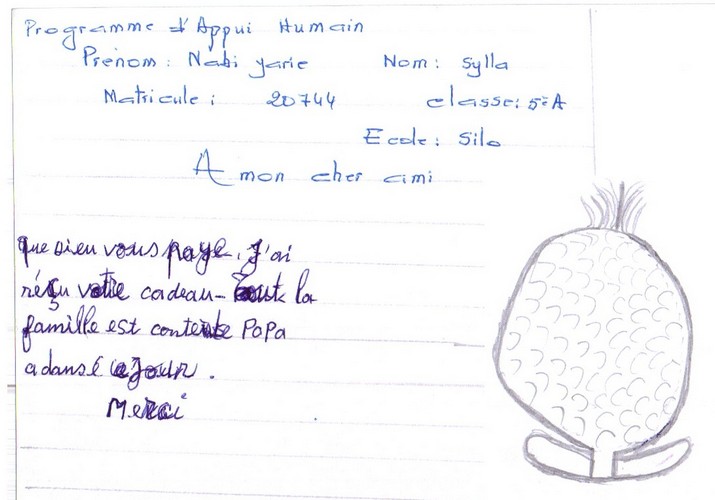 Programme d'Appui Humain
Prénom: Nabi yarie Nom: Sylla
Matricule: 20744 classe: 5eA
Ecole: Silo
A mon cher ami
que Dieu vous paye. J'ai
réçu votre cadeau - tout la
famille est contente PaPa
a dansé ce Jour.
Merci